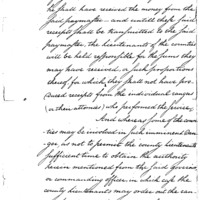 he shall have received the money from the
said paymaster — and untill these said
receipts shall be transmitted to the said
paymaster, the lieutenants of the counties
will be held responsible for the sums they
may have received, or such proportions
thereof for which they shall not have pro-
duced receipts from the individual rangers
(or their attornies) who performed the service.
And whereas some of the coun-
ties may be involved in such imminent dan-
ger, as not to permit the county lieutenants
sufficient time to obtain the authority
herein mentioned from the said governor
or commanding officer, in which case the
county lieutenants may order out the ran-